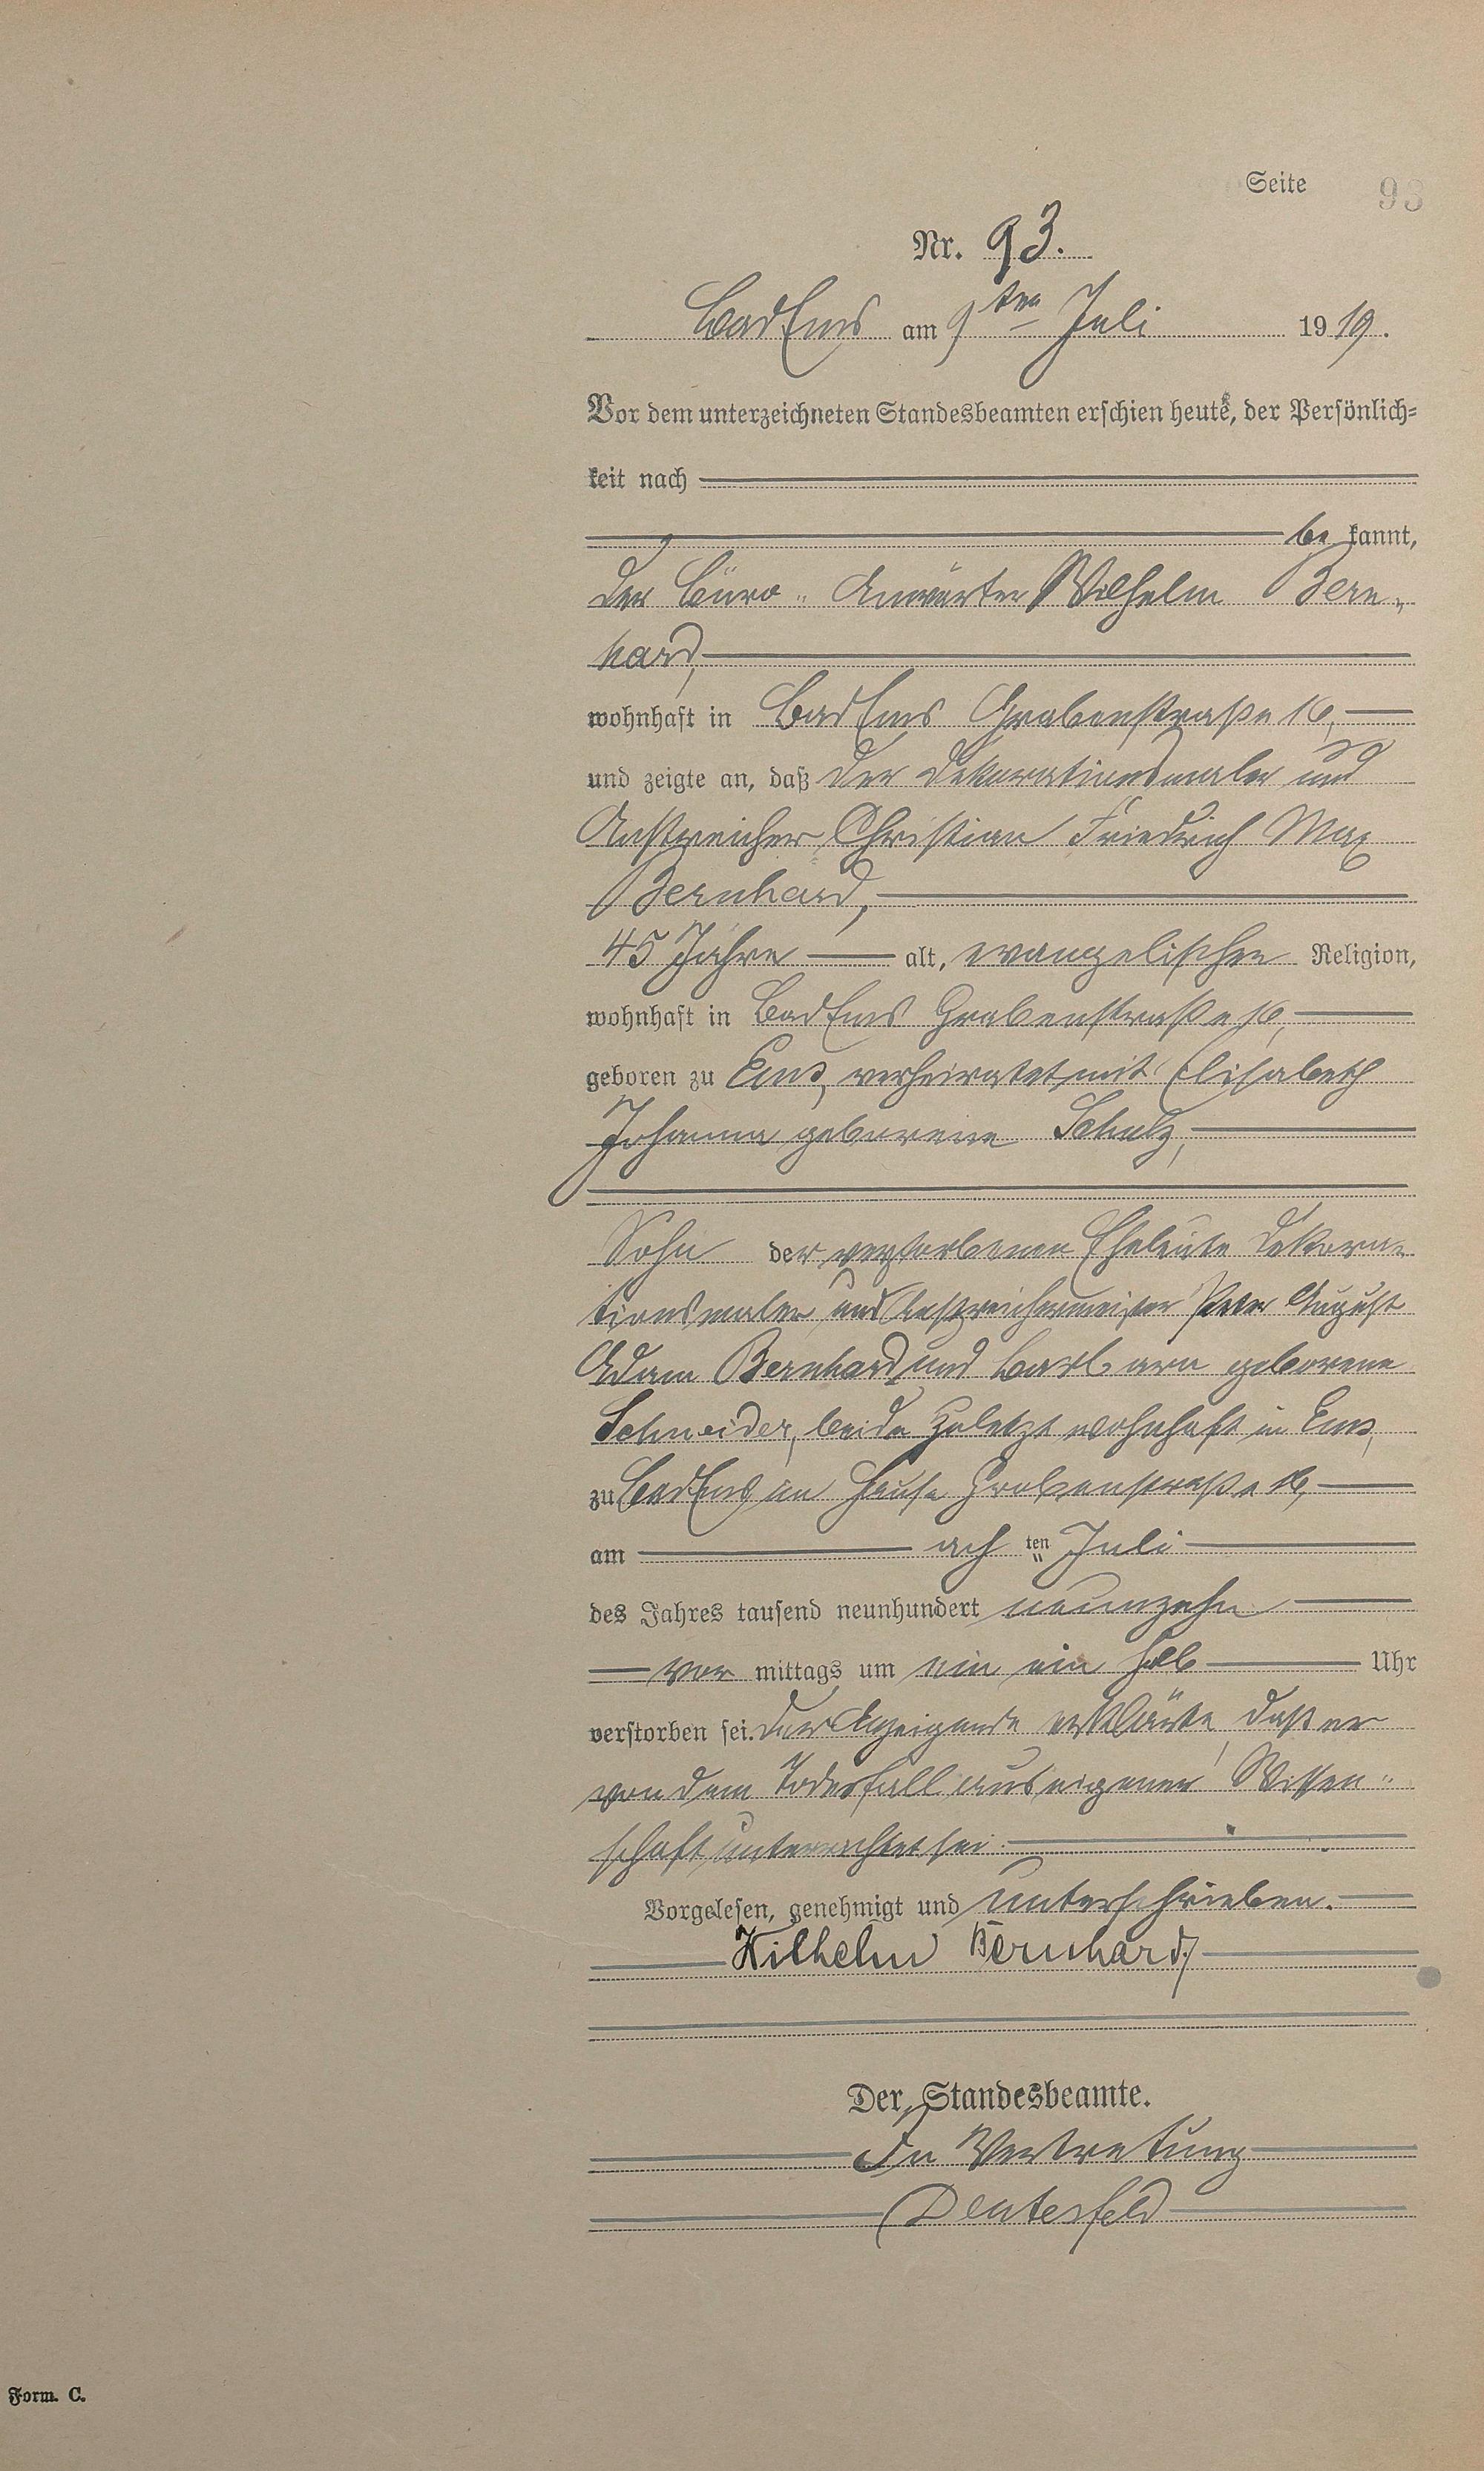 Seite 93
Nr. 93.
Bad Ems am 9ten Juli 1919.
Vor dem unterzeichneten Standesbeamten erschien heute, der Persönlich-
keit nach
be kannt,
der Büro-Anwärter Wilhelm Bern-
hard,
wohnhaft in Bad Ems Grabenstraße 16,
und zeigte an, daß der Dekorationsmaler und
Anstreicher Christian Friedrich Max
Bernhard,
45 Jahre alt, evangelischer Religion,
wohnhaft in Bad Ems Grabenstraße 16,
geboren zu Ems, verheiratet mit Elisabeth
Johanna geborene Schulz,
Sohn der verstorbenen Eheleute Dekora-
tionsmaler und Anstreichermeister Peter August
Adam Bernhard und Barbara geborene
Schneider, beide zuletzt wohnhaft in Ems,
zu Bad Ems im Hause Grabenstraße 16,
am ach ten Juli
des Jahres tausend neunhundert neunzehn
vor mittags um ein ein halb Uhr
verstorben sei. Der Anzeigende erklärte, daß er
von dem Todesfall aus eigener Wissen-
schaft unterrichtet sei.
Vorgelesen, genehmigt und unterschrieben.
Wilhelm Bernhard.
Der Standesbeamte.
In Vertretung
Form. C.